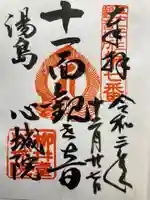 奉拝
令和三年
十一月廿七日
十一面観世音
湯島
心城院